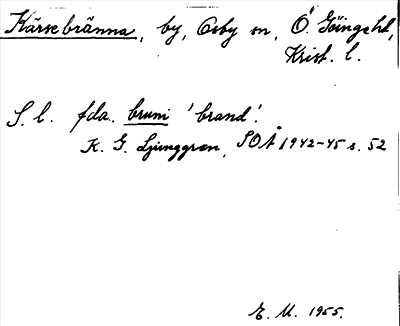 Kärsebränna, by, Osby sn, Ö. Göingehd,
Krist. l.
S. l. fda. bruni 'brand'.
K. G. Ljunggren, SOÅ 1942-45 s. 52
E. M. 1955.